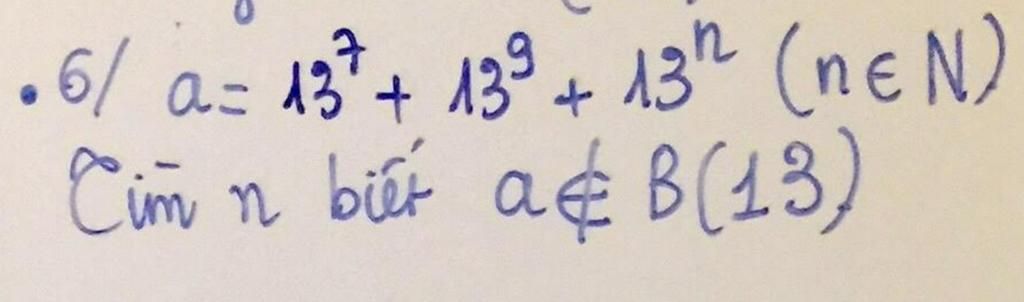 .6/ a = 13⁷ + 13⁹ + 13ⁿ (n ∈ N)
Tìm n biết a ∉ B(13)